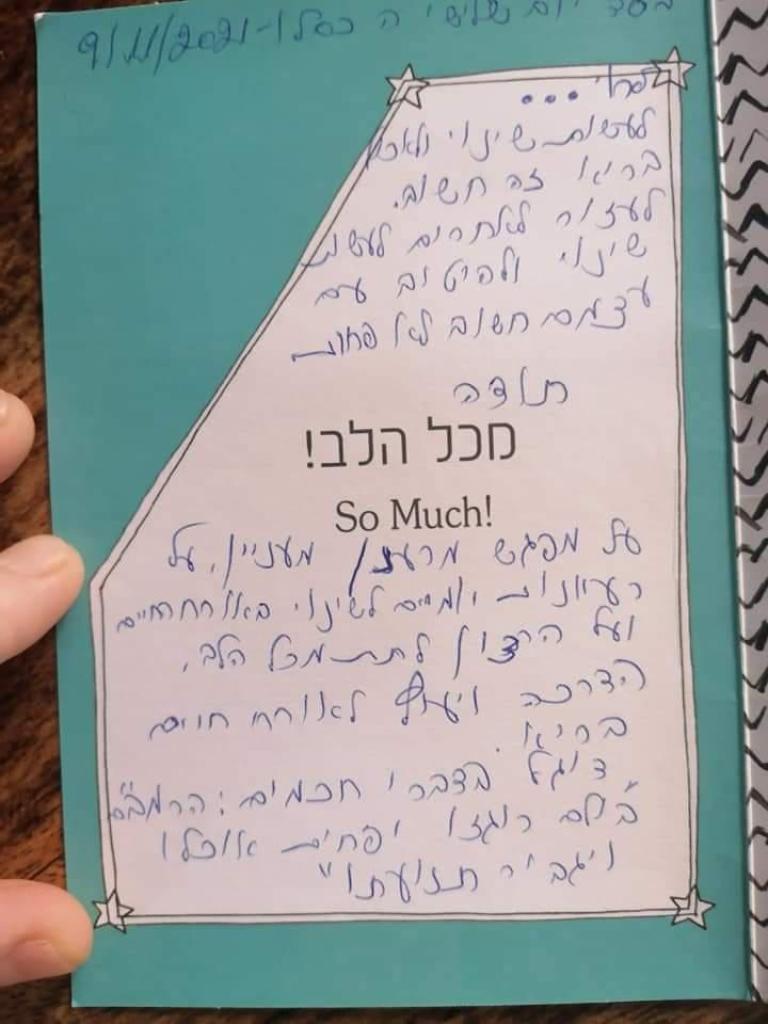 בסד יום שלישי ה כסלו - 9/11/2021
...
לעשות שינוי ולאכול
בריא זה חשוב.
לעזור לאחרים לעשות
שינוי ולהיטיב עם
עצמם חשוב לא פחות
תודה
מכל הלב!
So Much!
על מפגש מרענן מעניין, על
רעיונות יומיים לשינוי באורח חיים
ועל הרצון לתת מכל הלב,
הדרכה ויעוץ לאורח חיים
בריא.
דוגל בדברי חכמים: הרמב"ם
"בולם רוגזו יפחית אוכלו
ויגביר תנועתו"